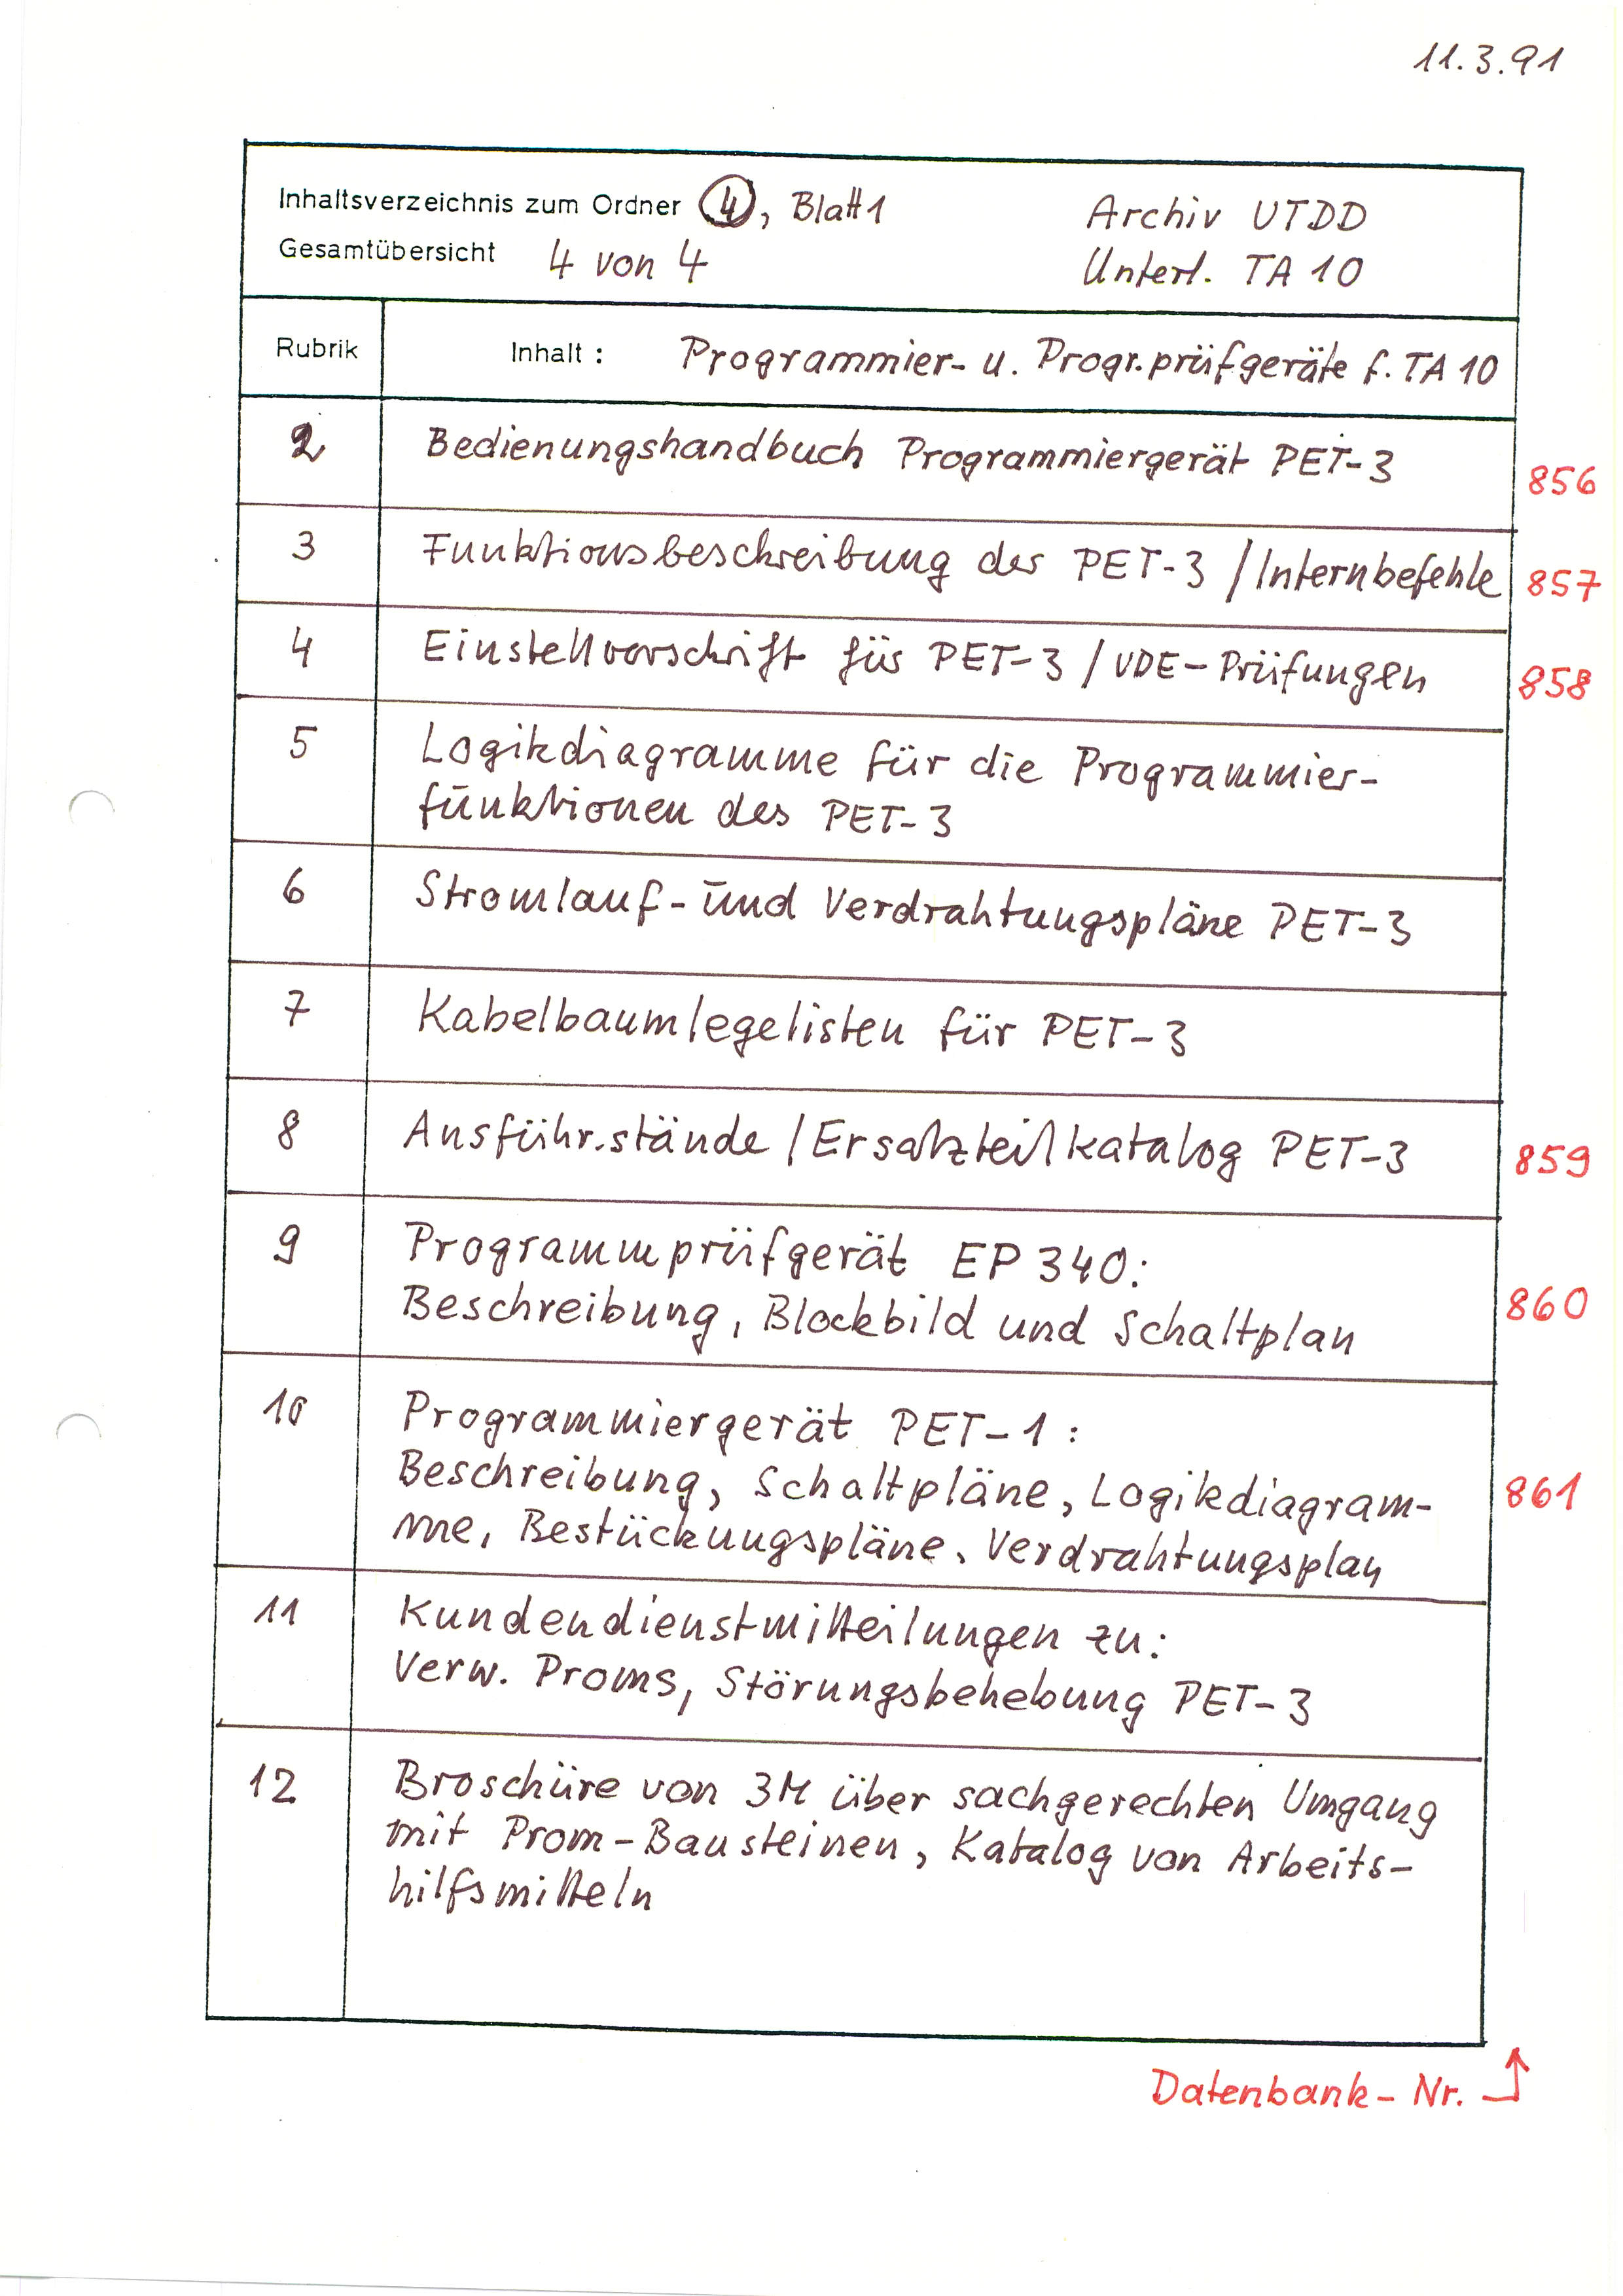 11.3.91
Inhaltsverzeichnis zum Ordner 4, Blatt 1
Archiv UTDD
Gesamtübersicht 4 von 4
Unterl. TA 10
Rubrik
Inhalt: Programmier- u. Progr.prüfgeräte f. TA 10
2 Bedienungshandbuch Programmiergerät PET-3 856
3 Funktionsbeschreibung des PET-3 / Internbefehle 857
4 Einstellvorschrift für PET-3 / VDE-Prüfungen 858
5 Logikdiagramme für die Programmier-
funktionen des PET-3
6 Stromlauf- und Verdrahtungspläne PET-3
7 Kabelbaumlegelisten für PET-3
8 Ausführ.stände / Ersatzteilkatalog PET-3 859
9 Programmprüfgerät EP 340:
Beschreibung, Blockbild und Schaltplan 860
10 Programmiergerät PET-1:
Beschreibung, Schaltpläne, Logikdiagram- 861
me, Bestückungspläne, Verdrahtungsplan
11 Kundendienstmitteilungen zu:
Verw. Proms, Störungsbehebung PET-3
12 Broschüre von 3M über sachgerechten Umgang
mit Prom-Bausteinen, Katalog von Arbeits-
hilfsmitteln
Datenbank-Nr.